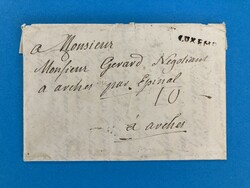 a Monsieur
Monsieur Gerard Negotiant
a arches par Epinal
10
à arches